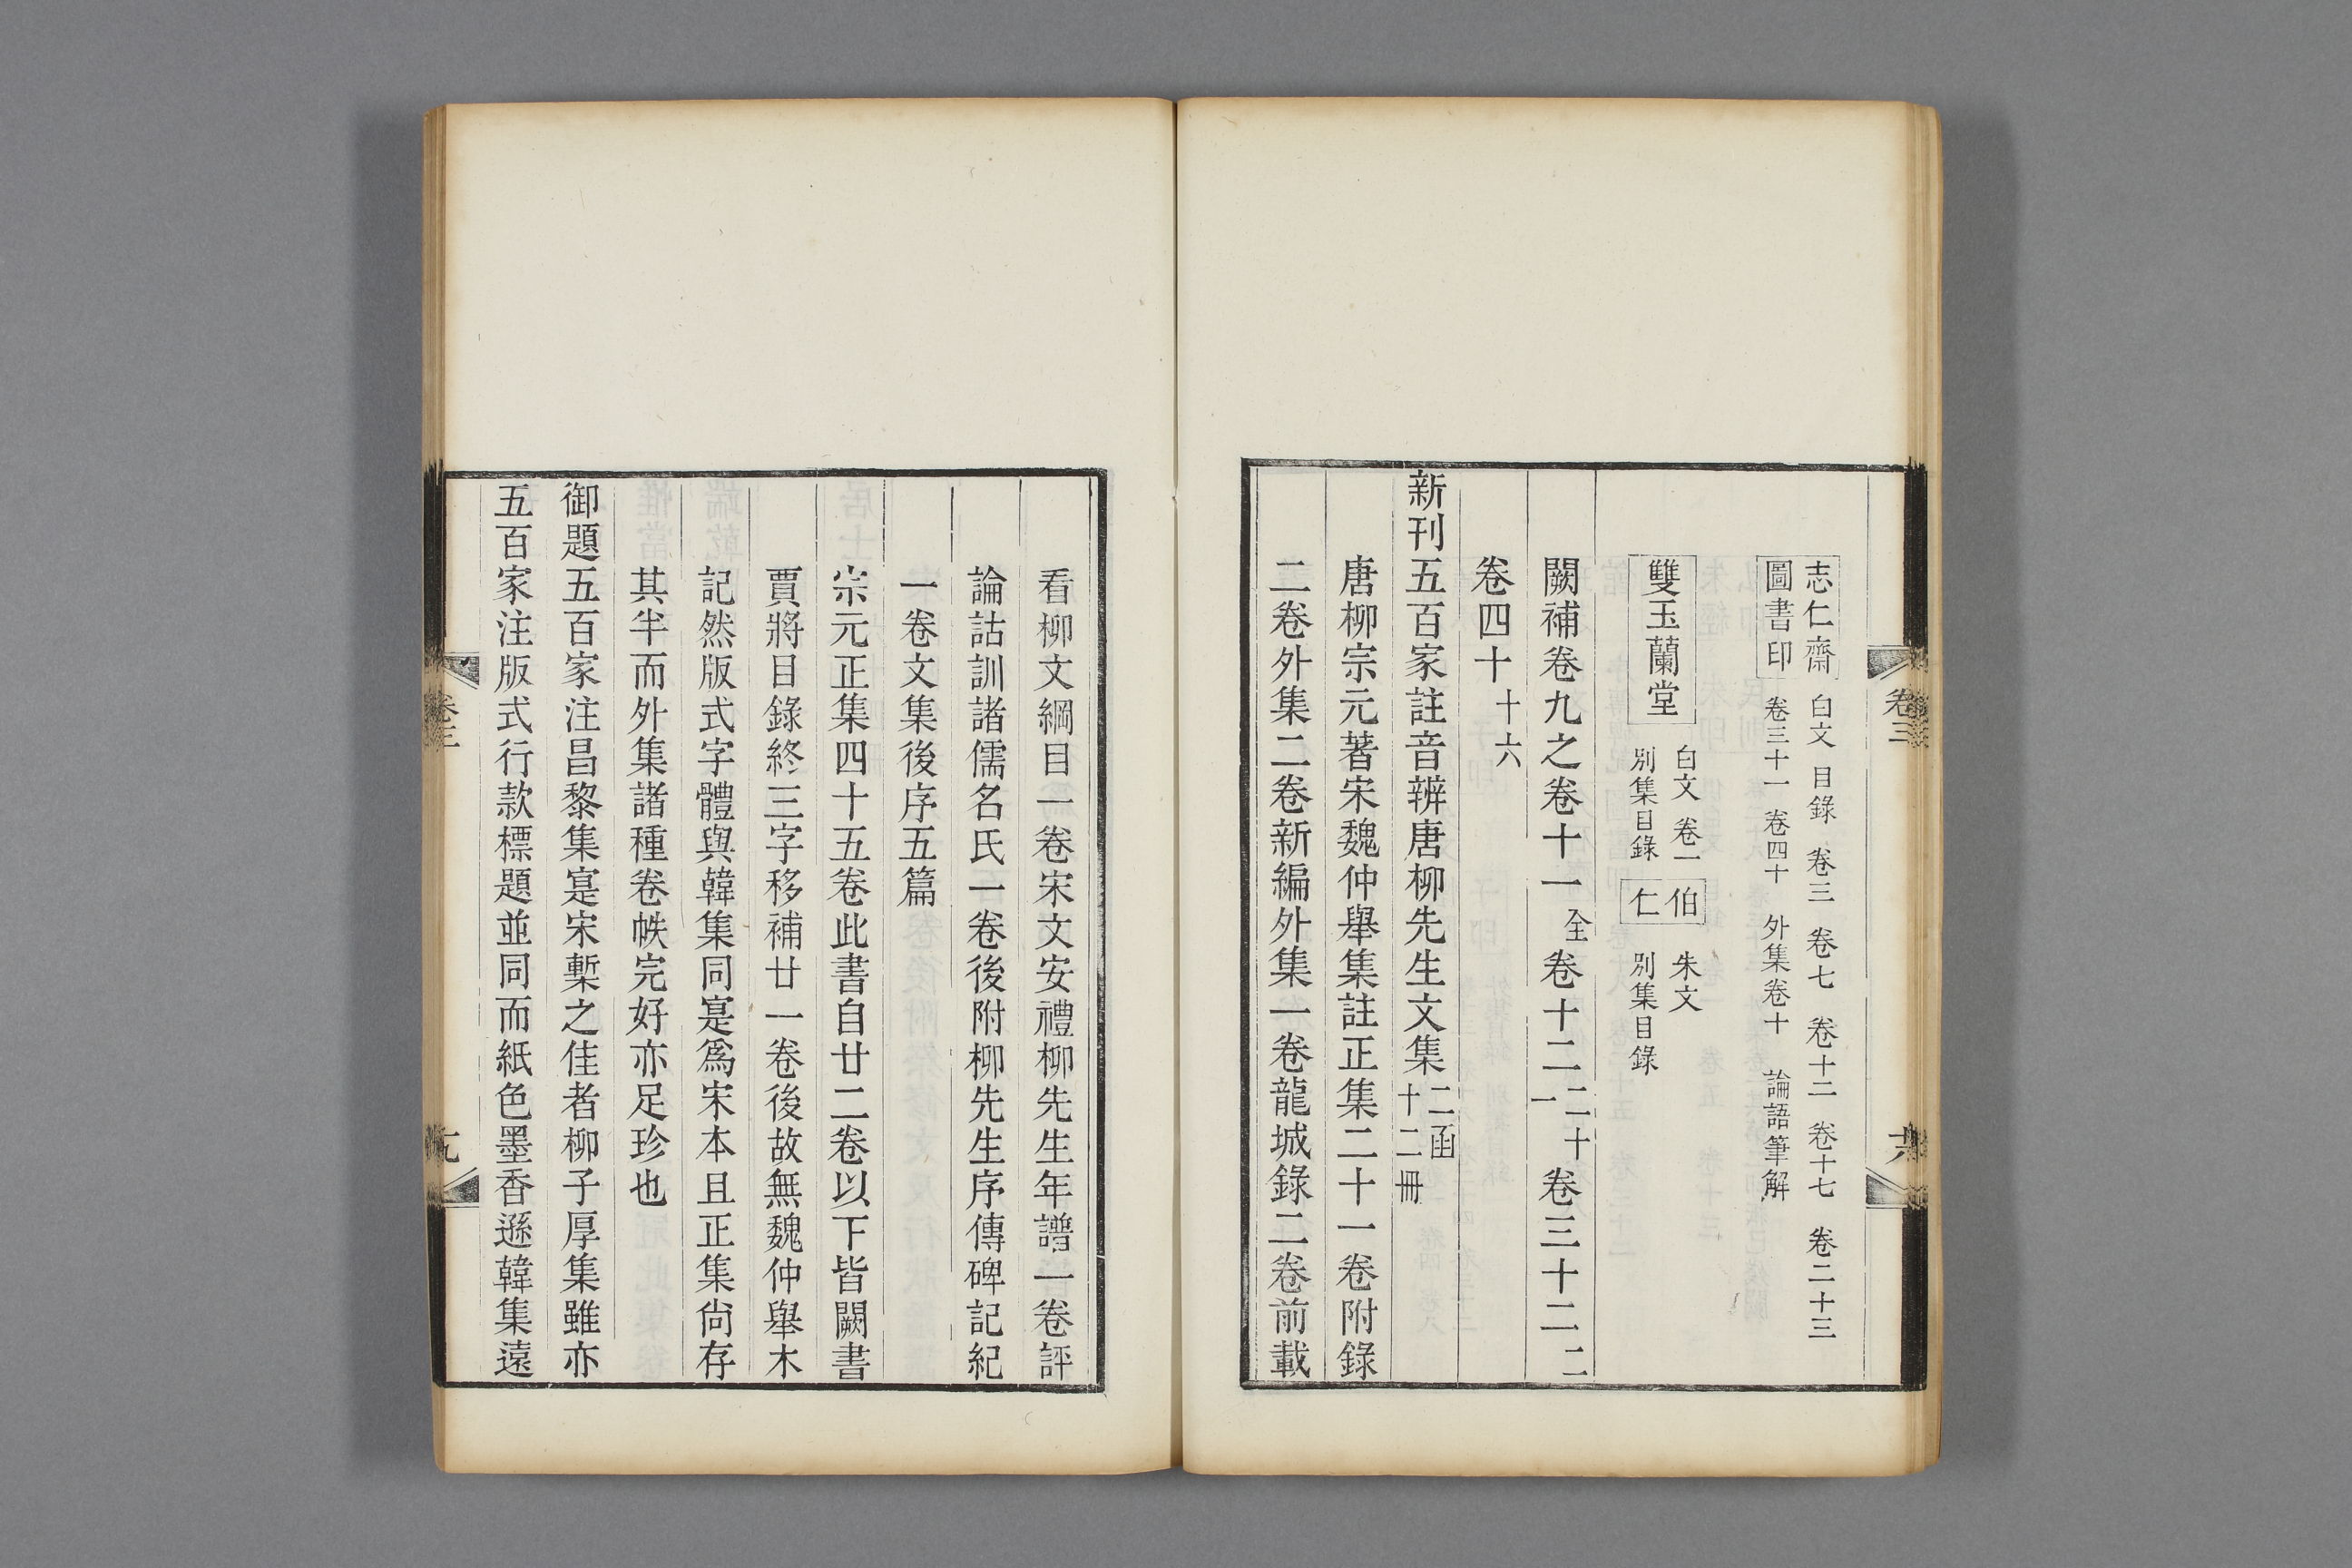 卷三
志仁齋
圖書印
白文 目錄 卷三 卷七 卷十二 卷十七 卷二十三
卷三十一 卷四十 外集卷十 論語筆解
雙玉蘭堂
白文 卷一
別集目錄
伯
仁
朱文
別集目錄
闕補卷九之卷十一全卷十二二十一卷三十二二
卷四十十六
新刊五百家註音辨唐柳先生文集二函十二冊
唐柳宗元著宋魏仲舉集註正集二十一卷附錄
二卷外集二卷新編外集一卷龍城錄二卷前載
看柳文綱目一卷宋文安禮柳先生年譜一卷評
論詁訓諸儒名氏一卷後附柳先生序傳碑記紀
一卷文集後序五篇
宗元正集四十五卷此書自廿二卷以下皆闕書
賈將目錄終三字移補廿一卷後故無魏仲舉木
記然版式字體與韓集同寔爲宋本且正集尙存
其半而外集諸種卷帙完好亦足珍也
御題五百家注昌黎集寔宋槧之佳者柳子厚集雖亦
五百家注版式行款標題並同而紙色墨香遜韓集遠
卷三